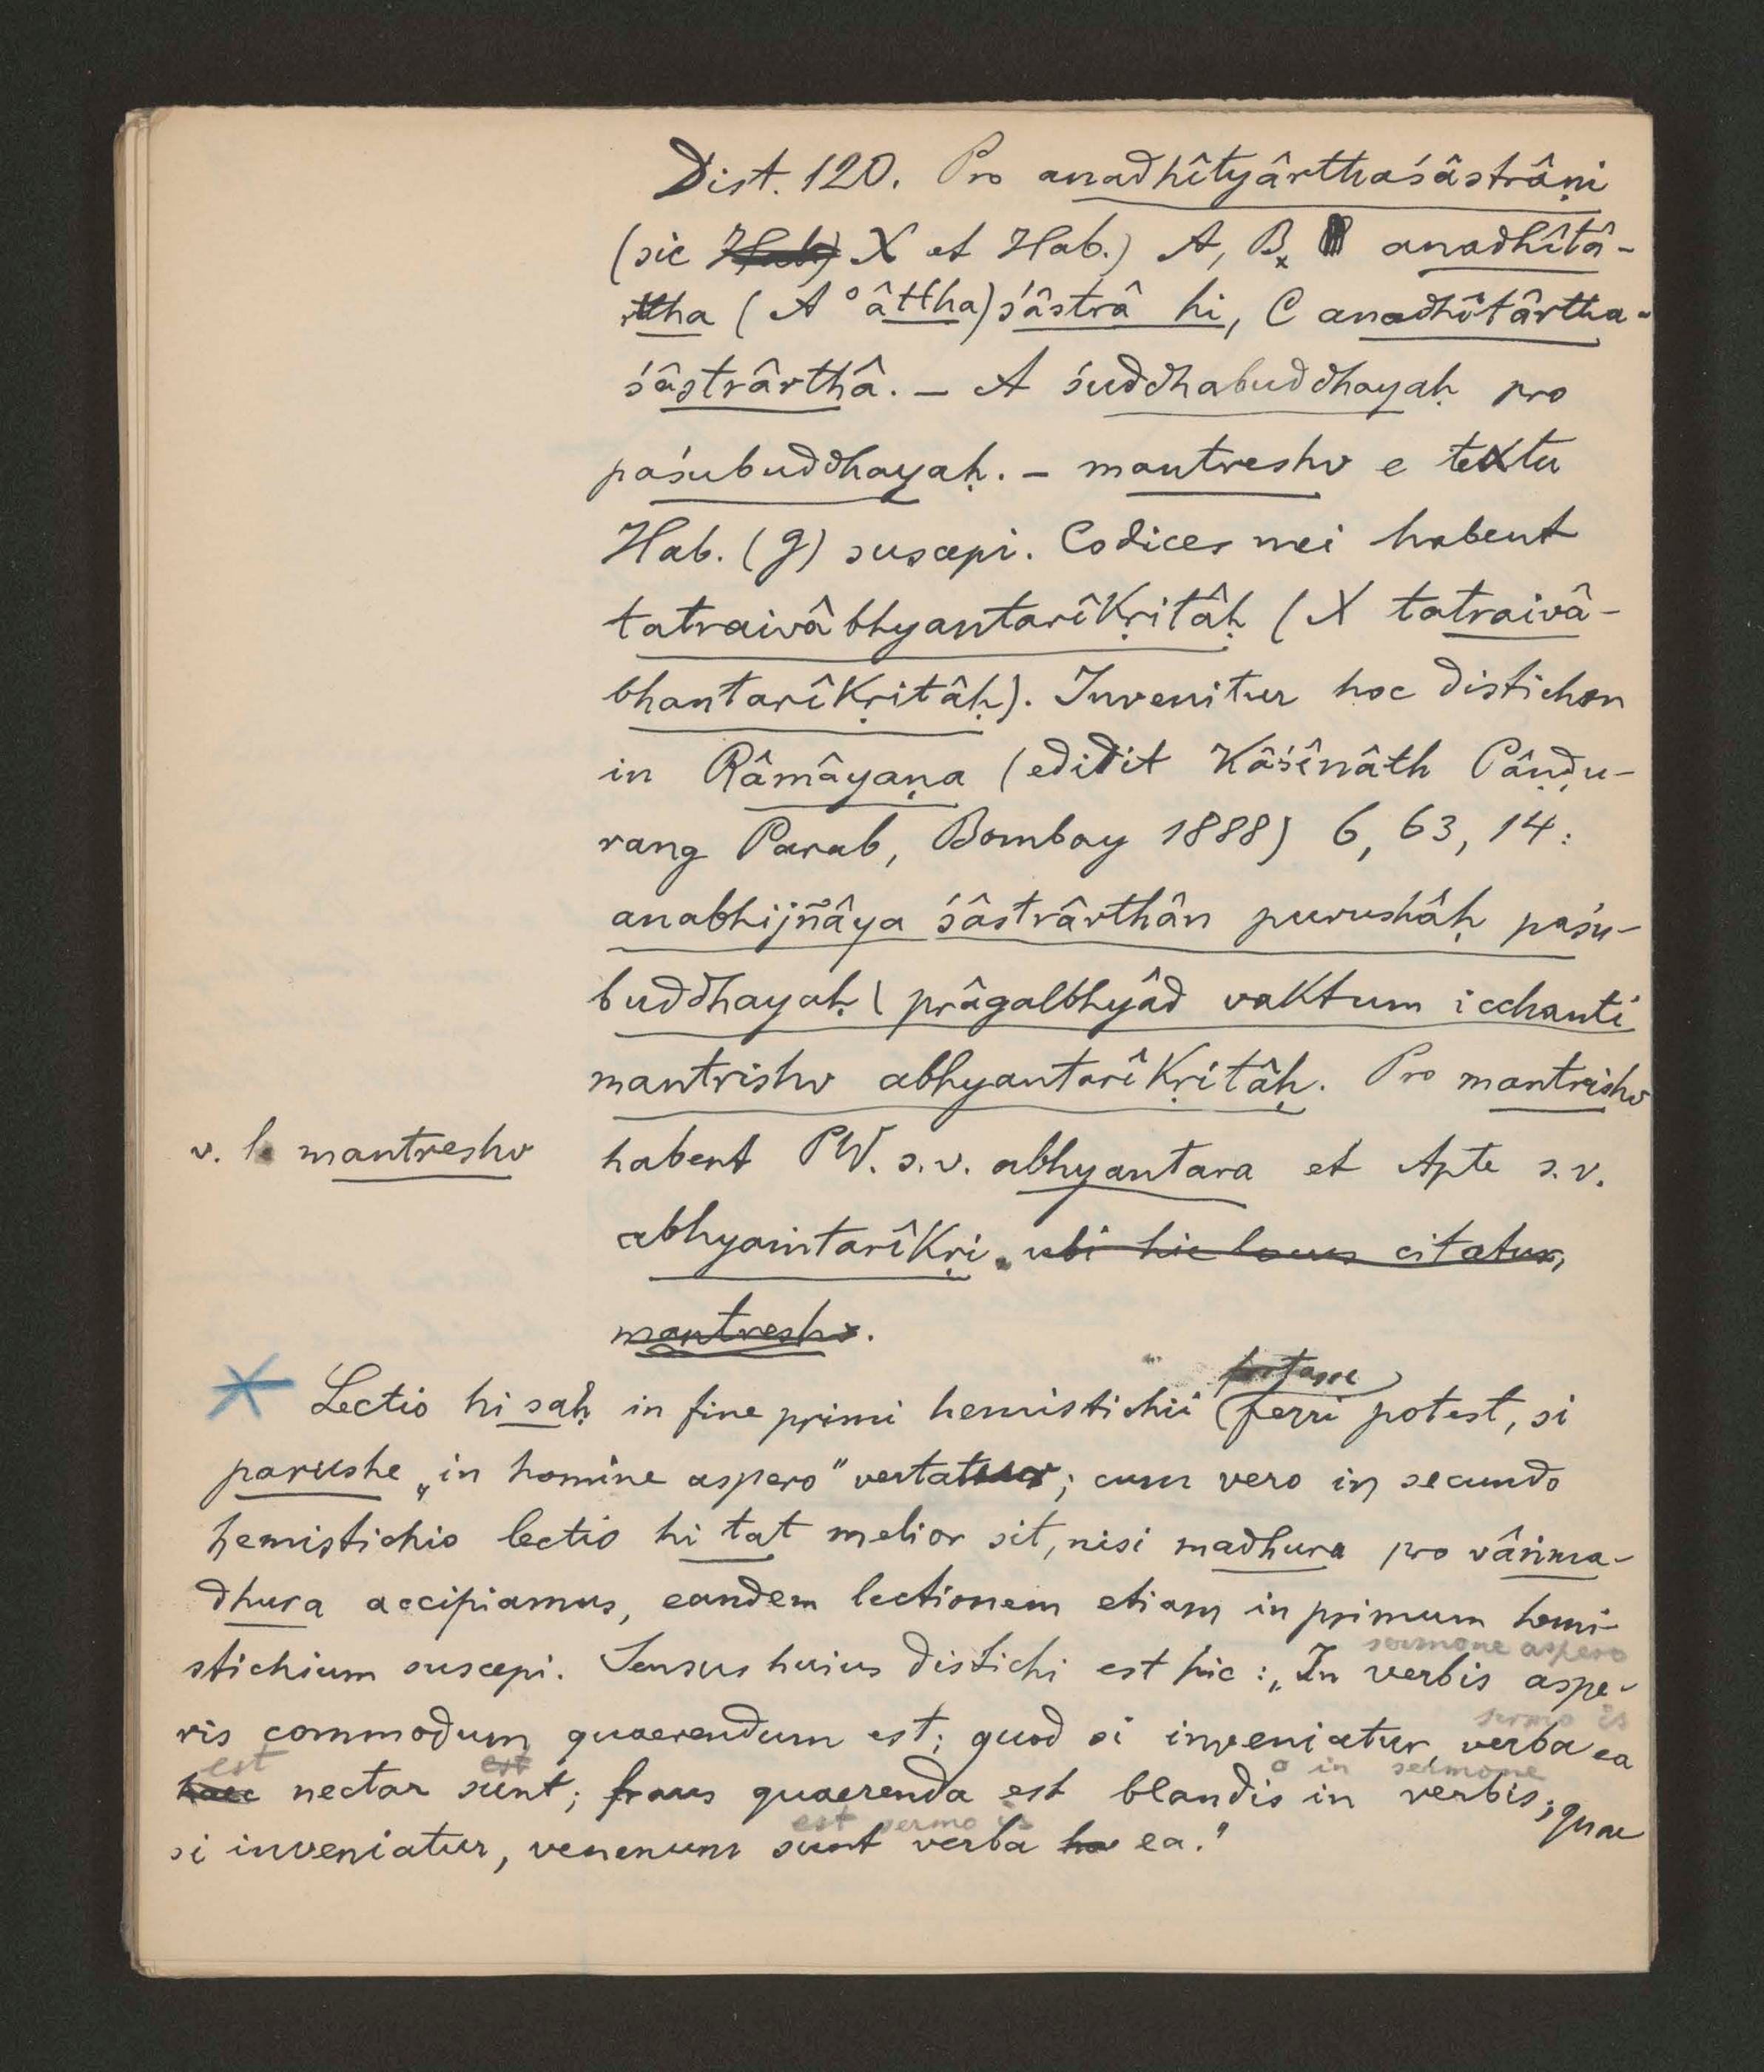 Dist. 120. Pro anadhîtyârthaśâstrâṇi
(sic Hab.) X et Hab.) A, B anadhîtâ-
rtha (A °âttha)śâstrâ hi, C anadhîtârtha-
śâstrârthâ. – A śuddhabuddhayaḥ pro
paśubuddhayaḥ. – mantreshv e textu
Hab. (g) suscepi. Codices mei habent
tatraivâbhyantarîkṛitâḥ (X tatraivâ-
bhantarîkṛitâḥ). Invenitur hoc distichon
in Râmâyaṇa (edidit Kâśînâth Pâṇḍu-
rang Parab, Bombay 1888) 6, 63, 14:
anabhijñâya śâstrârthân purushâḥ paśu-
buddhayaḥ | prâgalbhyâd vaktum icchanti
mantrishv abhyantarîkṛitâḥ. Pro mantrishv
v. l. mantreshv
habent PW. s.v. abhyantara et Apte s.v.
abhyantarîkṛi. ubi hic locus citatur,
mantreshv.
fortasse
Lectio hi saḥ in fine primi hemistichii (ferri potest, si
parushe „in homine aspero" vertatur; cum vero in secundo
hemistichio lectio hi tat melior sit, nisi madhura pro vâṅma-
dhura accipiamus, eandem lectionem etiam in primum hemi-
sermone aspero
stichium suscepi. Sensus huius distichi est hic: „In verbis aspe-
sermo is
ris commodum quaerendum est; quod si inveniatur, verba ea
est est o in sermone
haec nectar sunt; fraus quaerenda est blandis in verbis; quae
est sermo is
si inveniatur, venenum sunt verba ea."